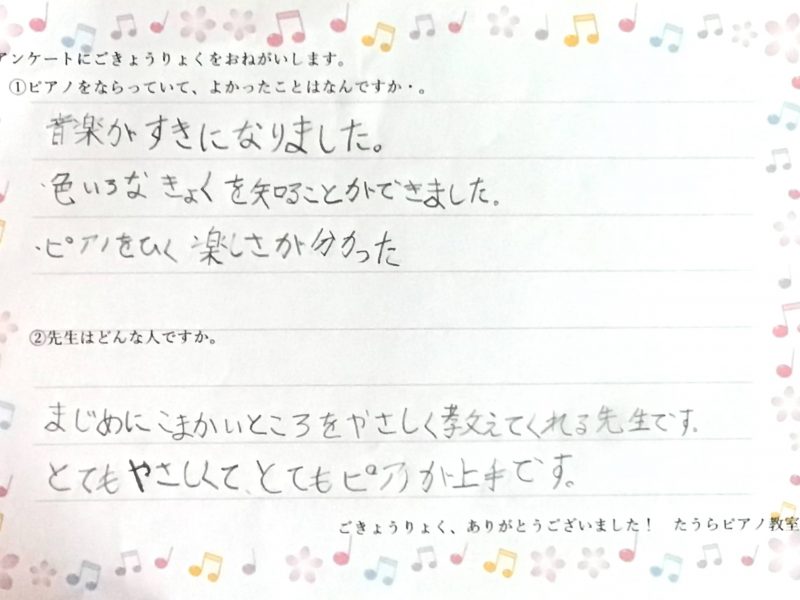 アンケートにごきょうりょくをおねがいします。
①ピアノをならっていて、よかったことはなんですか・。
音楽がすきになりました。
・色いろなきょくを知ることができました。
・ピアノをひく楽しさが分かった
②先生はどんな人ですか。
まじめにこまかいところをやさしく教えてくれる先生です。
とてもやさしくて、とてもピアノが上手です。
ごきょうりょく、ありがとうございました！　たうらピアノ教室